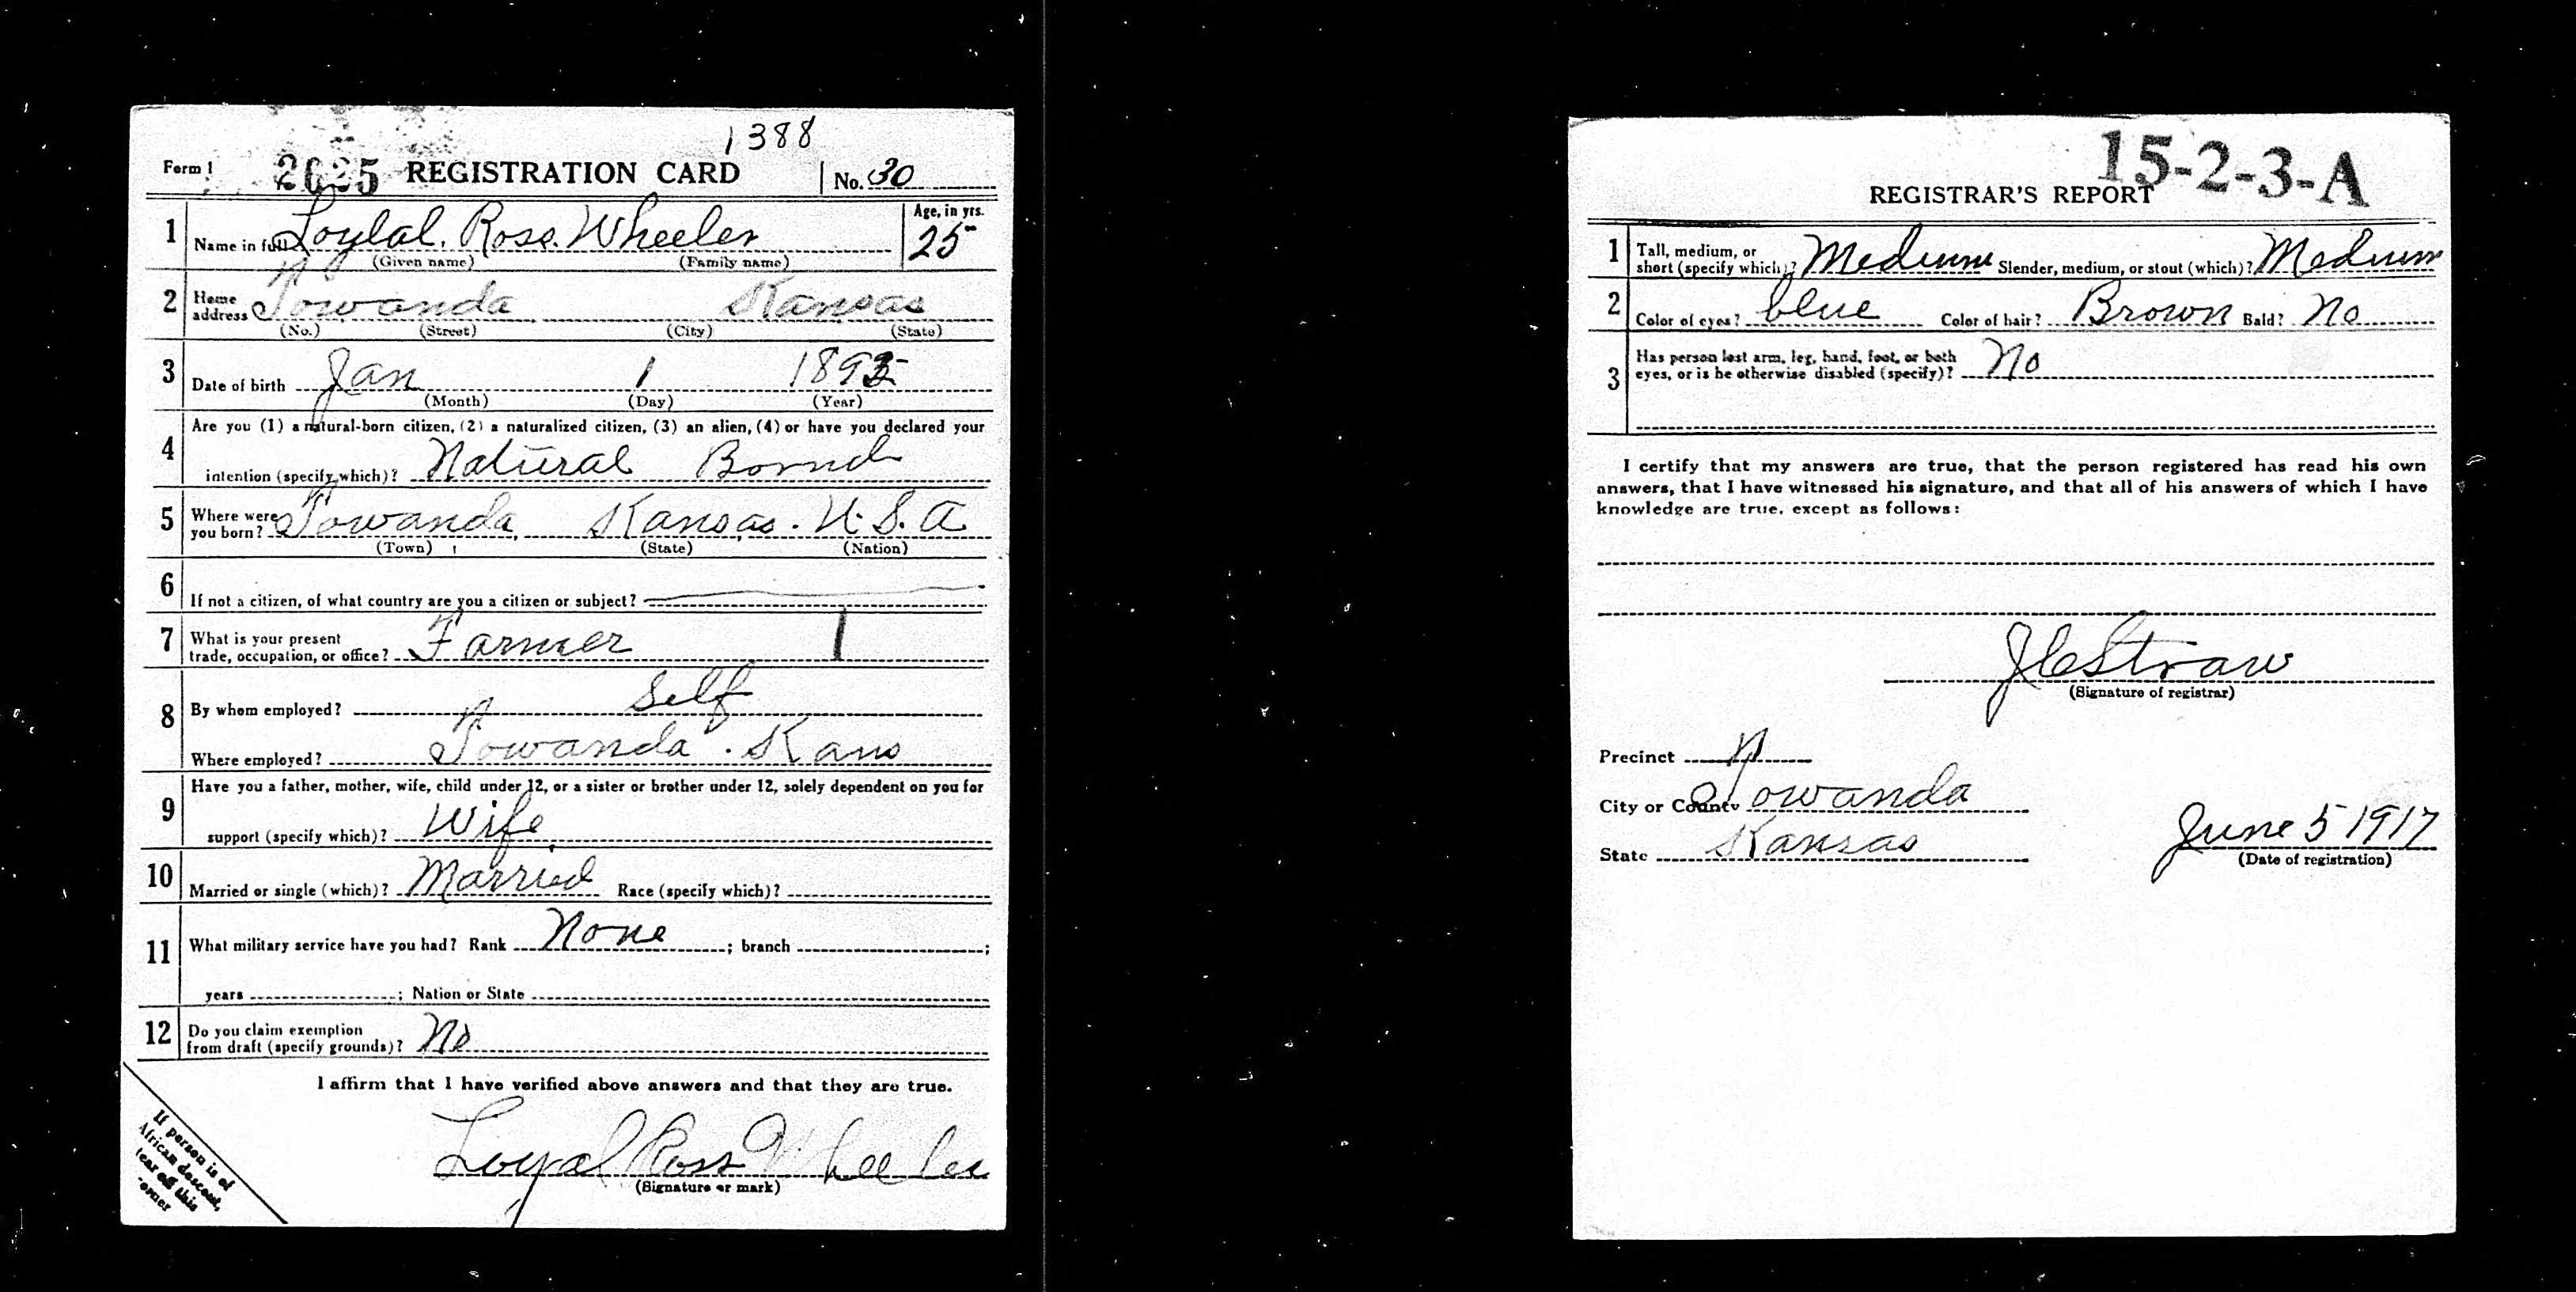 1388
Form 1 2625 REGISTRATION CARD No. 30
1 Name in full Loylal. Ross. Wheeler Age, in yrs. 25
(Given name) (Family name)
2 Home address Towanda Kansas
(No.) (Street) (City) (State)
3 Date of birth Jan 1 1892
(Month) (Day) (Year)
4 Are you (1) a natural-born citizen, (2) a naturalized citizen, (3) an alien, (4) or have you declared your
intention (specify which)? Natural Bornd
5 Where were you born? Towanda, Kansas. U.S.A
(Town) (State) (Nation)
6 If not a citizen, of what country are you a citizen or subject?
7 What is your present
trade, occupation, or office? Farmer 1
8 By whom employed? Self
Where employed? Towanda. Kans
9 Have you a father, mother, wife, child under 12, or a sister or brother under 12, solely dependent on you for
support (specify which)? Wife
10 Married or single (which)? Married Race (specify which)?
11 What military service have you had? Rank None ; branch ;
years ; Nation or State
12 Do you claim exemption
from draft (specify grounds)? No
I affirm that I have verified above answers and that they are true.
Loyal Ross Wheeler
(Signature or mark)
If person is of
African descent,
tear off this
corner
15-2-3-A
REGISTRAR'S REPORT
1 Tall, medium, or
short (specify which)? Medium Slender, medium, or stout (which)? Medium
2 Color of eyes? blue Color of hair? Brown Bald? No
3 Has person lost arm, leg, hand, foot, or both
eyes, or is he otherwise disabled (specify)? No
I certify that my answers are true, that the person registered has read his own
answers, that I have witnessed his signature, and that all of his answers of which I have
knowledge are true, except as follows:
J C Straw
(Signature of registrar)
Precinct
City or County Towanda
State Kansas
June 5 1917
(Date of registration)